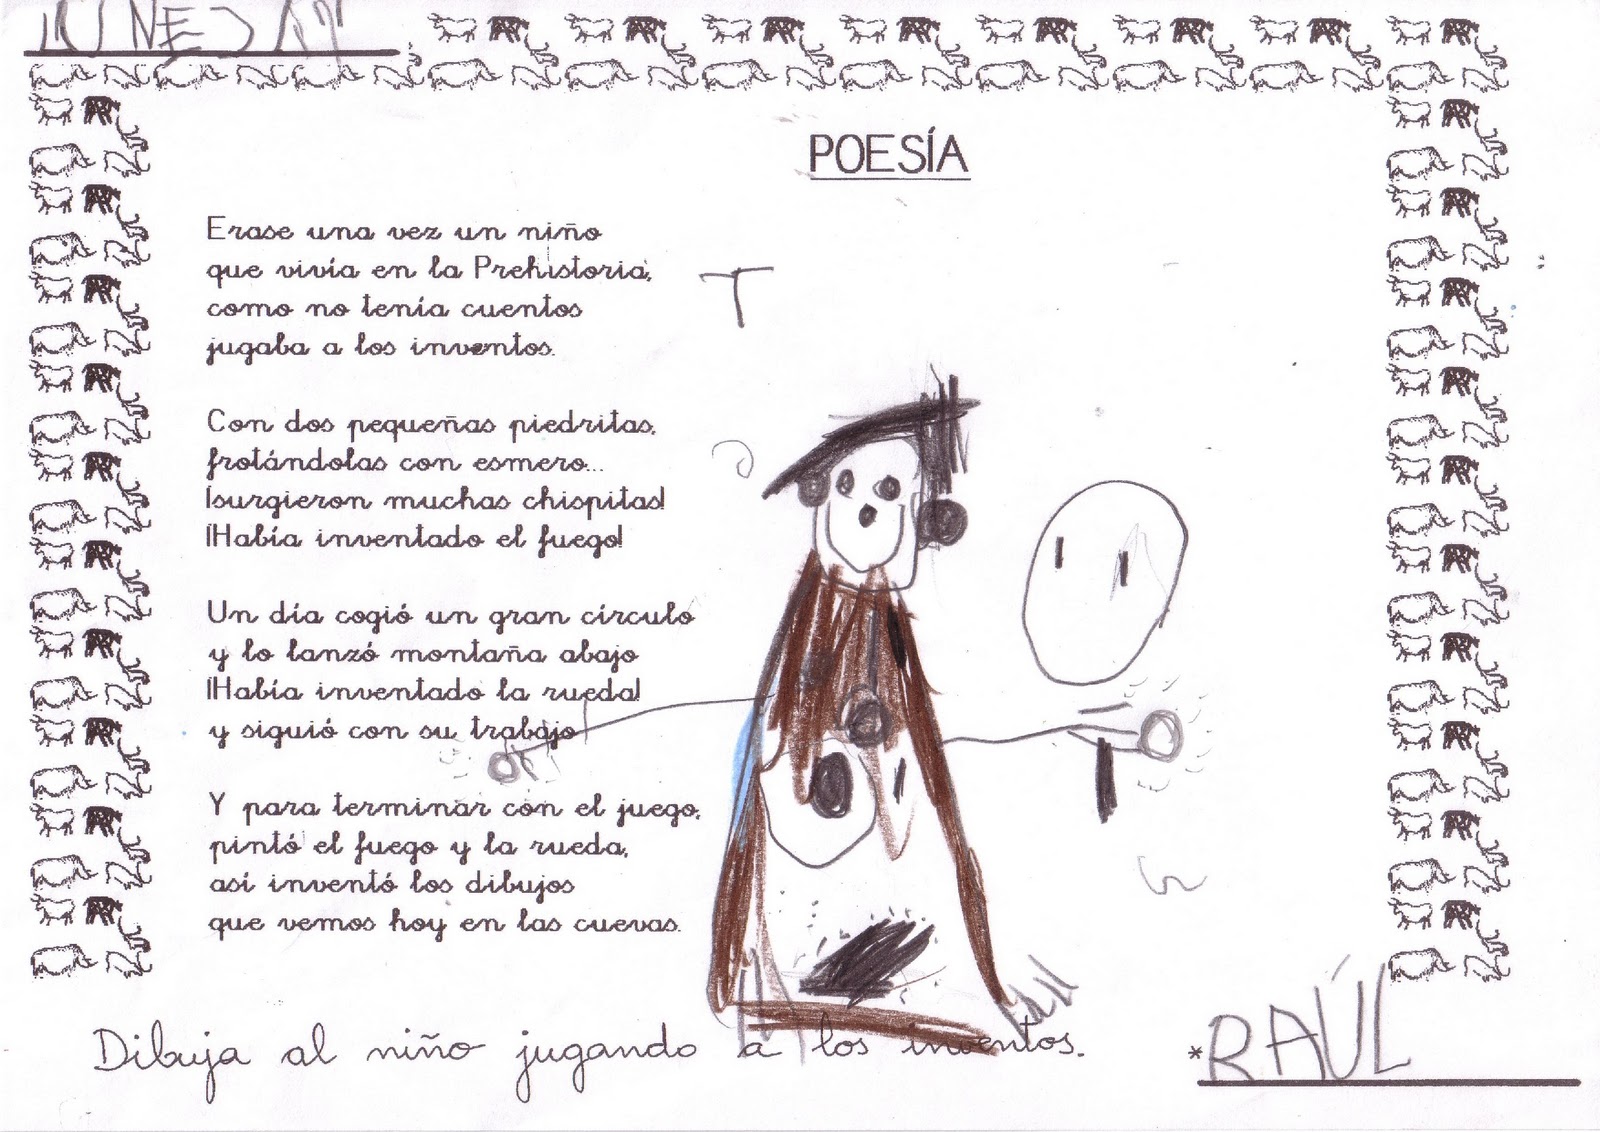 POESÍA
Erase una vez un niño
que vivía en la Prehistoria,
como no tenía cuentos
jugaba a los inventos.
Con dos pequeñas piedritas,
frotándolas con esmero...
¡surgieron muchas chispitas!
¡Había inventado el fuego!
Un día cogió un gran círculo
y lo lanzó montaña abajo
¡Había inventado la rueda!
y siguió con su trabajo
Y para terminar con el juego,
pintó el fuego y la rueda,
así inventó los dibujos
que vemos hoy en las cuevas.
Dibuja al niño jugando a los inventos.
*RAÚL